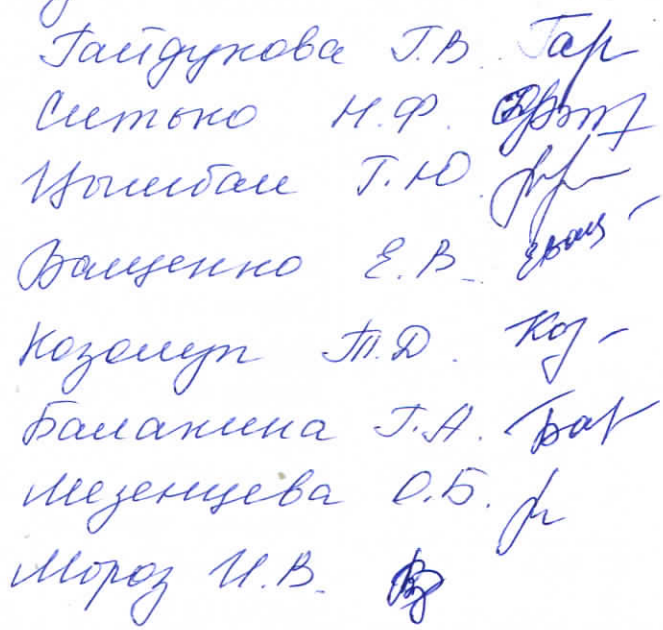 Гайдукова Г.В.
Ситько Н.Ф.
Цымбал Г.Ю.
Ващенко Е.В.
Козолуп Т.Д.
Балакина Г.А.
Мезенцева О.Б.
Мороз И.В.